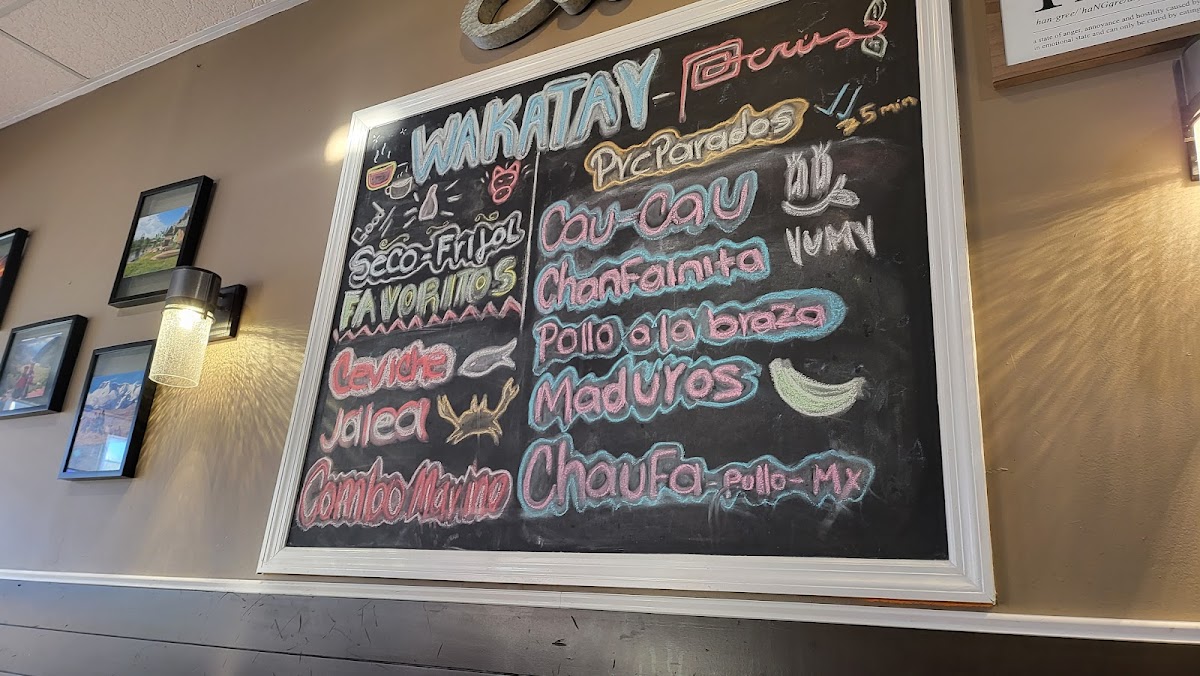 WAKATAY - Peru
Seco-Frijol
FAVORITOS
Ceviche
Jalea
Combo Marino
PreParados
35 min
YUMY
Cau-Cau
Chanfainita
Pollo a la braza
Maduros
Chaufa - Pollo - MX
han-gree/ 'haNGgre/
a state of anger, annoyance and hostility caused b
n emotional state and can only be cured by eating